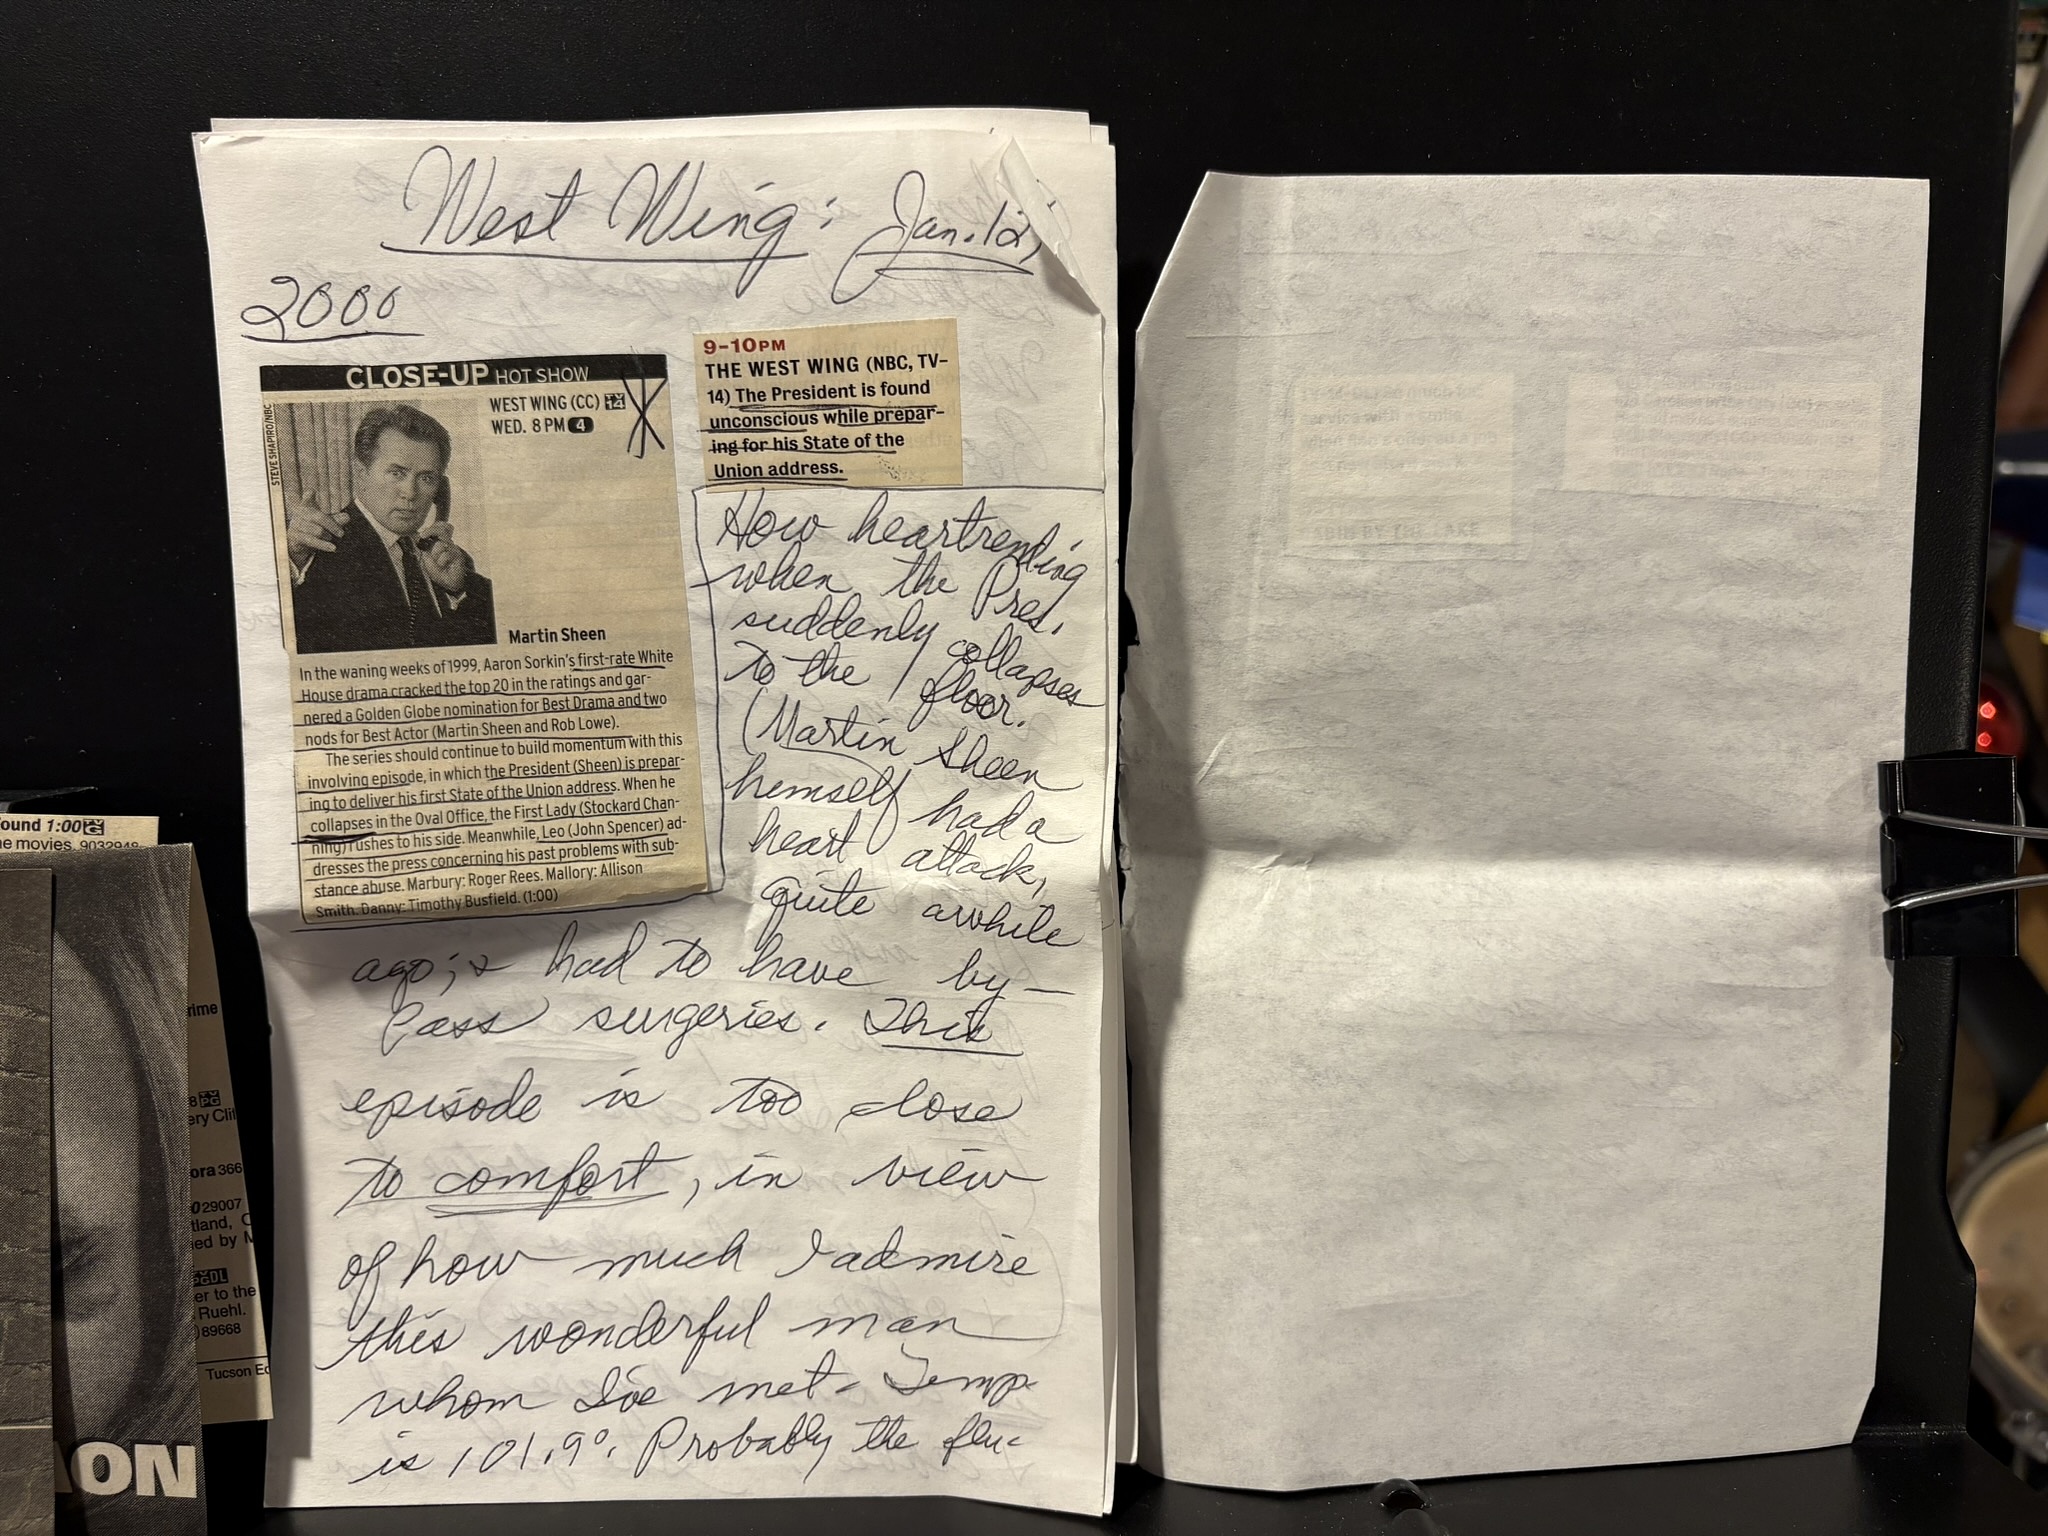 West Wing: Jan. 12,
2000
CLOSE-UP HOT SHOW
STEVE SHAPIRO/NBC
WEST WING (CC) TV 14
WED. 8 PM 4
Martin Sheen
In the waning weeks of 1999, Aaron Sorkin's first-rate White
House drama cracked the top 20 in the ratings and gar-
nered a Golden Globe nomination for Best Drama and two
nods for Best Actor (Martin Sheen and Rob Lowe).
The series should continue to build momentum with this
involving episode, in which the President (Sheen) is prepar-
ing to deliver his first State of the Union address. When he
collapses in the Oval Office, the First Lady (Stockard Chan-
ning) rushes to his side. Meanwhile, Leo (John Spencer) ad-
dresses the press concerning his past problems with sub-
stance abuse. Marbury: Roger Rees. Mallory: Allison
Smith. Danny: Timothy Busfield. (1:00)
9-10PM
THE WEST WING (NBC, TV-
14) The President is found
unconscious while prepar-
ing for his State of the
Union address.
How heartrending
when the Pres.
suddenly collapses
to the floor.
(Martin Sheen
himself had a
heart attack,
quite awhile
ago; & had to have by-
pass surgeries. This
episode is too close
to comfort, in view
of how much I admire
this wonderful man
whom I've met - Temp.
is 101.9°. Probably the flu-
ound 1:00 TV G
e movies. 9032948
rime
8 TV PG
ery Clif
ora 366
029007
tland, C
ed by M
er to the
Ruehl.
)89668
Tucson Ed
ON